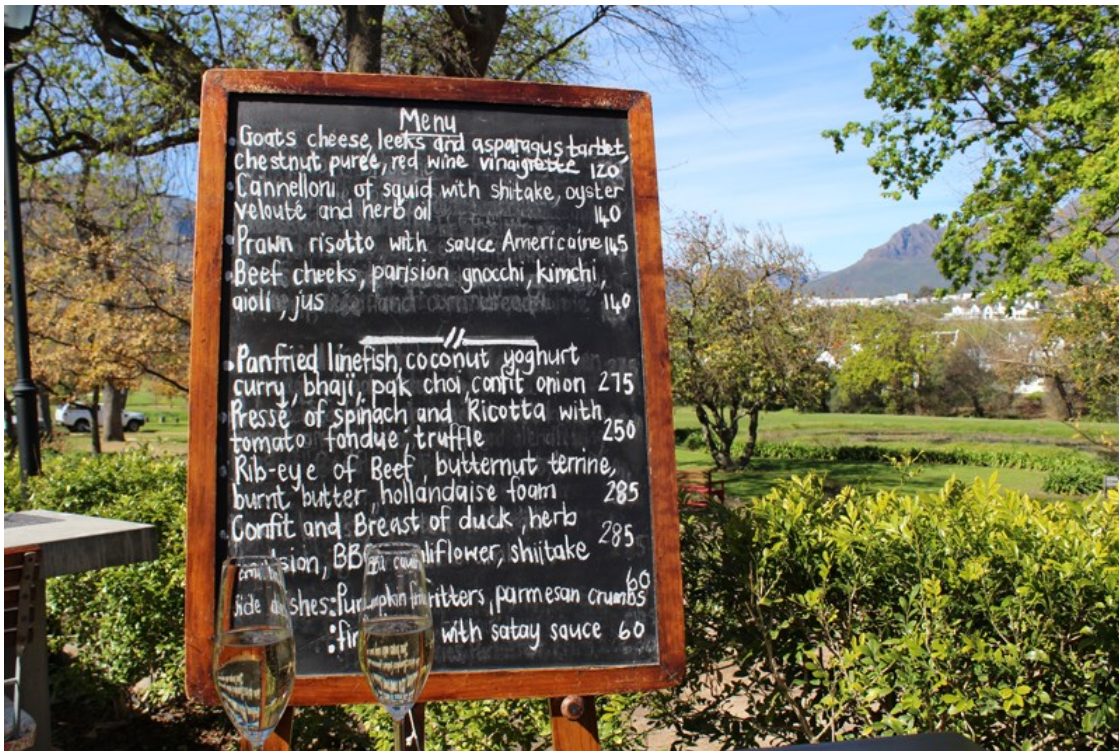 Menu
Goats cheese, leeks and asparagus tartlet,
chestnut puree, red wine vinaigrette 120
Cannelloni of squid with shitake, oyster
velouté and herb oil 140
Prawn risotto with sauce Americaine 145
Beef cheeks, parision gnocchi, kimchi,
aioli, jus 140
Panfried linefish, coconut yoghurt
curry, bhaji, pak choi, confit onion 275
Pressé of spinach and Ricotta with
tomato fondue, truffle 250
Rib-eye of Beef, butternut terrine,
burnt butter, hollandaise foam 285
Confit and Breast of duck, herb
BBQ cauliflower, shiitake 285
Side dishes: Pumpkin fritters, parmesan crumbs 60
: with satay sauce 60